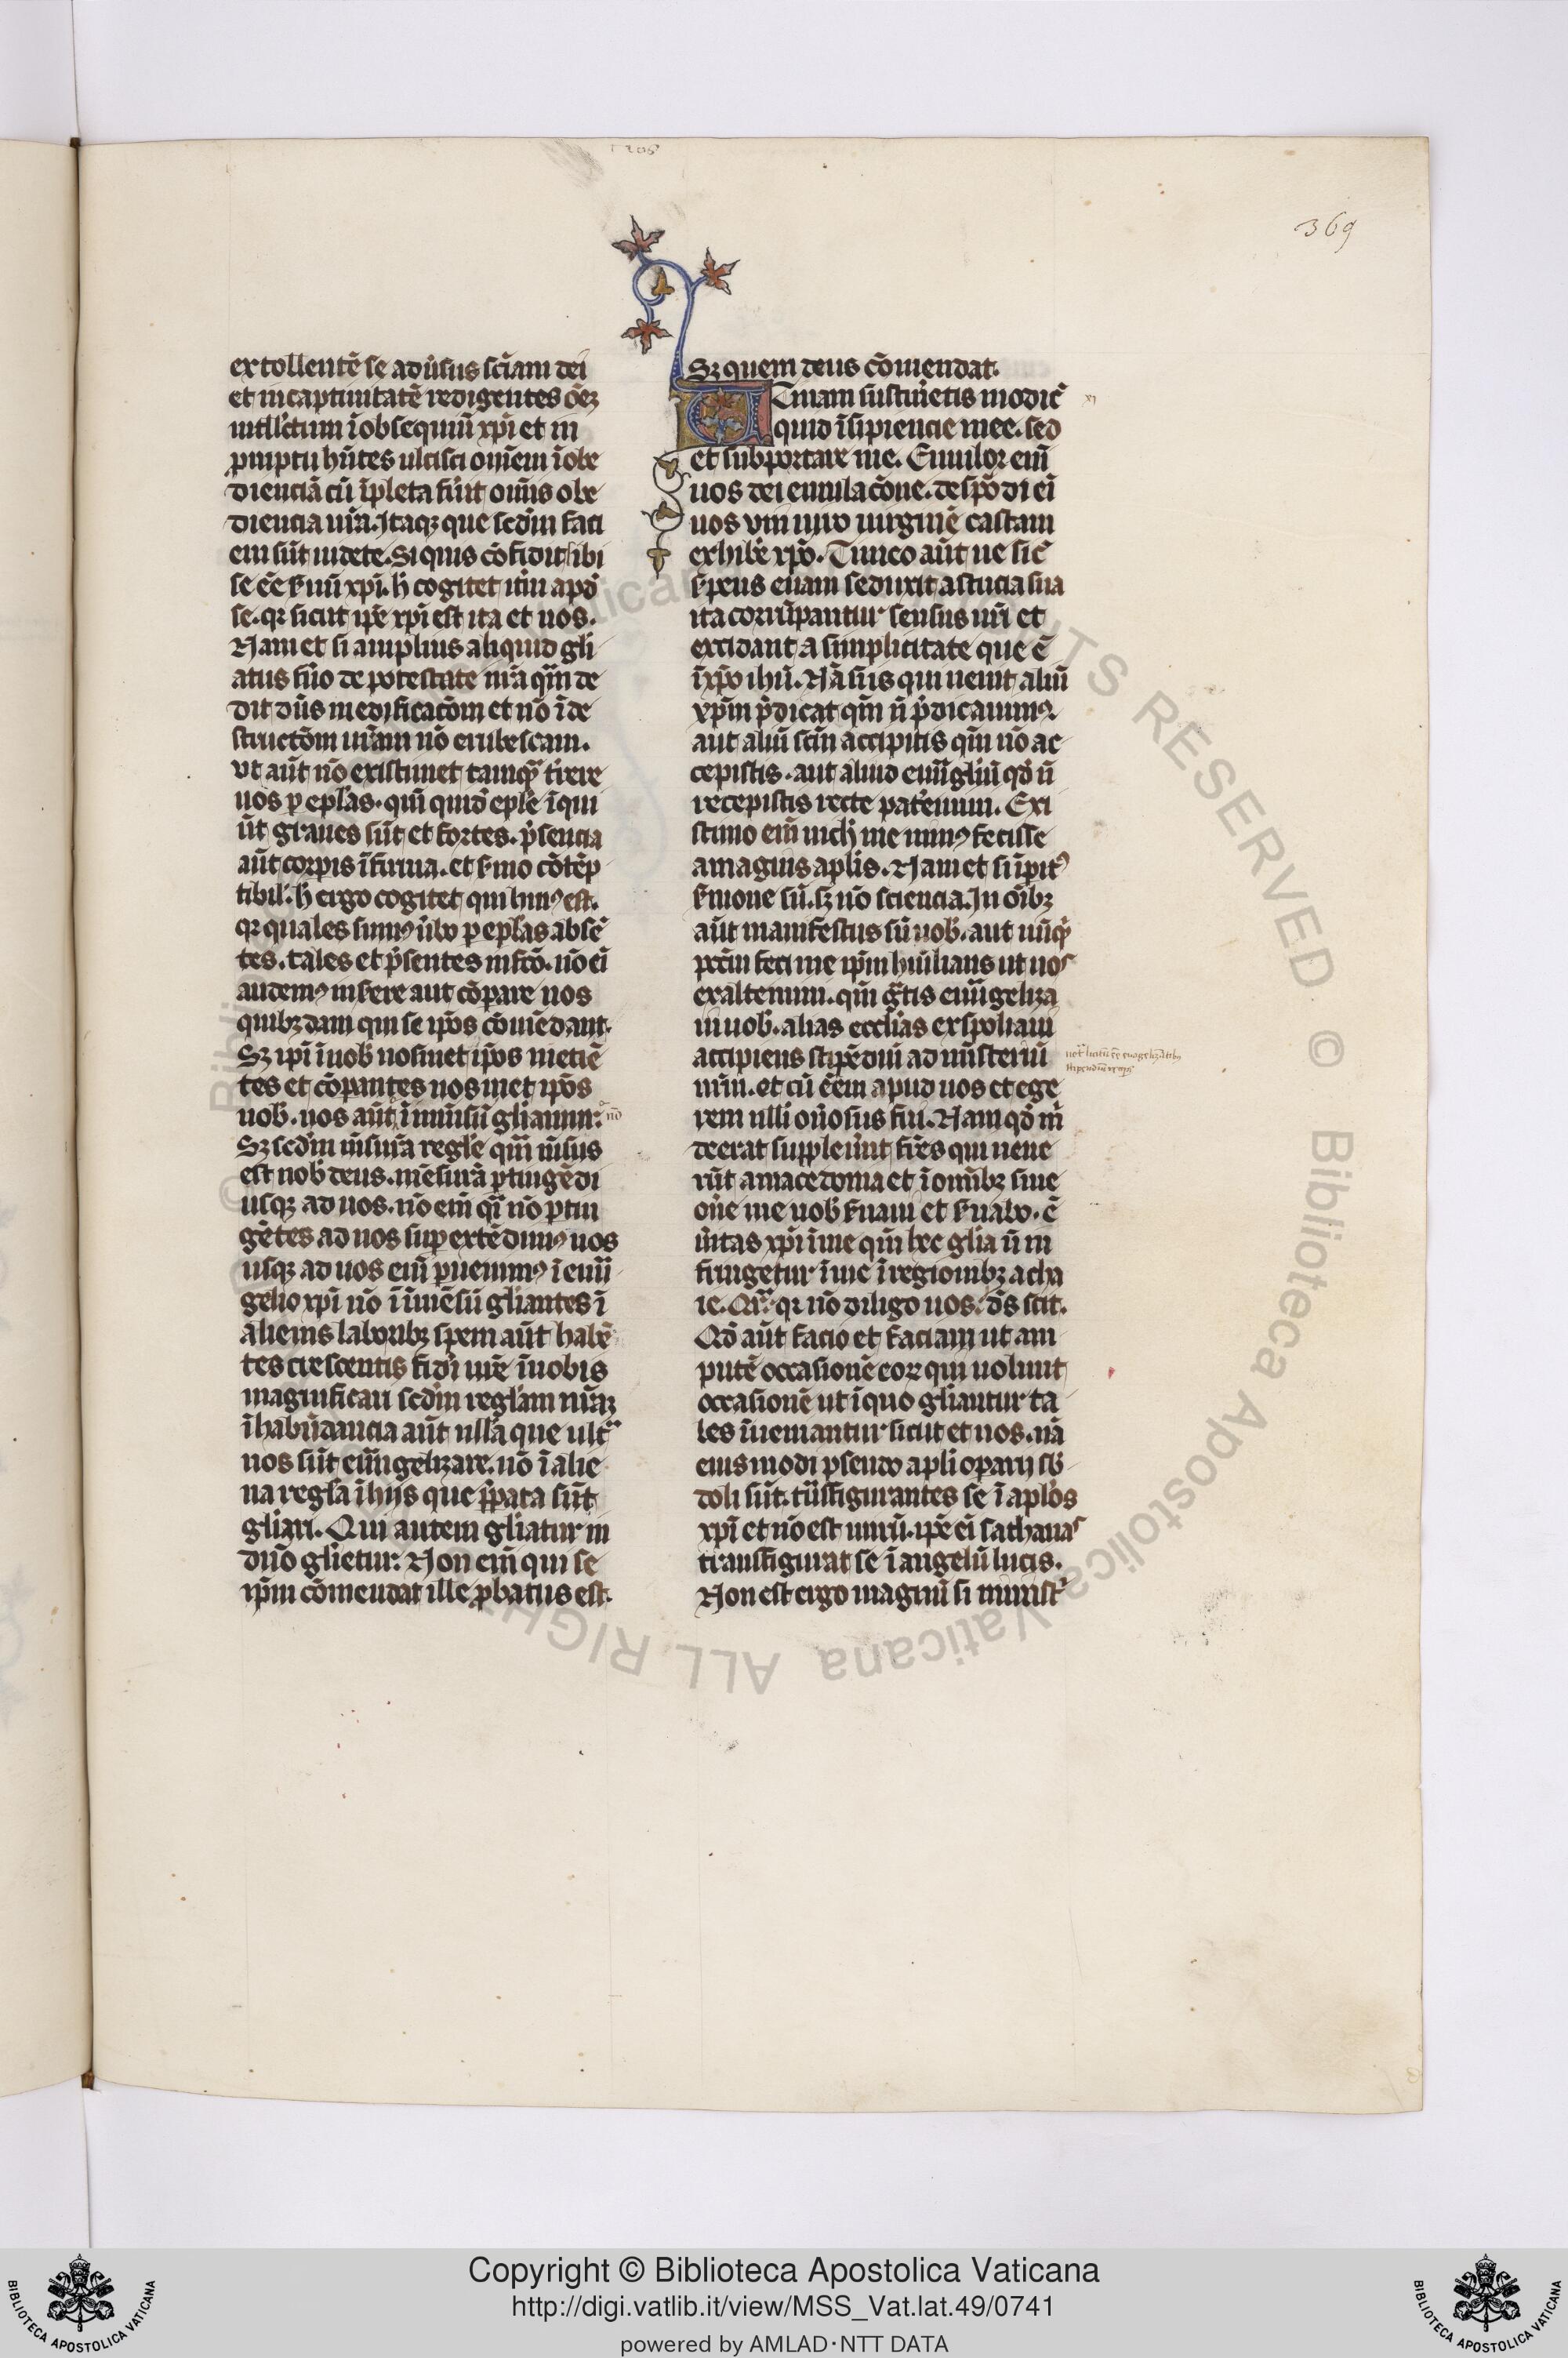 369
extollentē se adusus sciam dei
et in captiuitatē redigentes oēz
intllctum ī obsequiū xpi et in
pmptu hntes ulcisci omem īobe
dienciā cū īpleta fuīt omis obe
diencia ura. Itaqz que scdm faci
em sūt uidete. Si quis cōfidit sibi
se ēē suū xpi. h cogitet itm apd
se. qz sicut ipe xpi est ita et nos.
Nam et si amplius aliquid gli
atus fuo de potestate nra qm de
dit dns in edificacōm et nō ī de
structōm uram nō erubescam.
Vt aut nō existimet tamqm trere
uos p eplas. qm quid eple īqui
ūt graues sūt et fortes. psencia
aut corpis īfirma. et smo cōtēp
tibil. h ergo cogitet qui huius est.
qz quales sumus ubo p eplas absē
tes. tales et psentes in fcō. nō ei
audemus inserere aut cōpare nos
quibzdam qui se ipos cōmēdant.
Sz ipi ī nob nosmet ipos metiē
tes et cōpantes nosmet ipos
nob. nos aut ī inmsū gliamur. nō
Sz scdm msura regle qm msus
est nob deus. mēsurā ptingēdi
usqz ad uos. nō em qsi nō ptin
gētes ad uos supextēdimus nos
usqz ad uos em puenimus ī euū
gelio xpi nō ī īmēsū gliantes ī
alienis laboribz spem aut habē
tes crescentis fidei ure ī uobis
magnificari scdm reglam nraz
ī habūdancia aut ulla que ult
nos sūt euūngelizare. nō ī alie
na regla ī hiis que ppata sūt
gliari. Qui autem gliatur in
dno glietur. Non em qui se
ipm cōmendat ille pbatus est.
Sz quem deus cōmendat.
Utinam sustinetis modic xi
quid īsipiencie mee. sed
et subportare me. Emulor em
uos dei emulacōne. despōdi ei
uos vni uiro uirginē castam
exhibe xpo. Timeo aut ne sic
spens euam seduxit astucia sua
ita corrūpantur sensus uri et
excidant a simplicitate que ē
ī xpo ihu. Nā si is qui uenit aliū
xpm pdicat qm n pdicauimus.
aut aliū spm accipitis qm nō ac
cepistis. aut aliud euūgliū qd n
recepistis recte patemini. Exi
stimo em nich me minus fecisse
a magnis aplis. Nam et si īpit
smone sū. sz nō sciencia. In oībz
aut manifestus sū uob. aut nūqd
pctm feci me ipm humilians ut uos
exaltemini. qm gtis euūgeliza
ui uob. alias ecclias expoliaui
accipiens stipēdiū ad mīsteriū
urm. et cū eēm apud uos et ege
rem nlli onosus fui. Nam qd m
deerat suppleuīnt fres qui uene
rūt a macedonia et ī omibz sine
one me uob seruaui et seruabo. ē
uitas xpi ī me qm hec glia n in
fringetur ī me ī regionibz acha
ie. Qre qz nō diligo uos. ds scit.
Qd aut facio et faciam ut am
putē occasionē eorz qui uolunt
occasionē ut ī quo gliantur ta
les īueniantur sicut et nos. nā
eiusmodi pseudo apli operarij sb
doli sūt. tūsfigurantes se ī aplos
xpi et nō est mirū. ipe ei sathanas
transfigurat se ī angelū lucis.
Non est ergo magnū si ministr
Copyright © Biblioteca Apostolica Vaticana
http://digi.vatlib.it/view/MSS_Vat.lat.49/0741
powered by AMLAD·NTT DATA
BIBLIOTECA APOSTOLICA VATICANA
BIBLIOTECA APOSTOLICA VATICANA
© Biblioteca Apostolica Vaticana ALL RIGHTS RESERVED